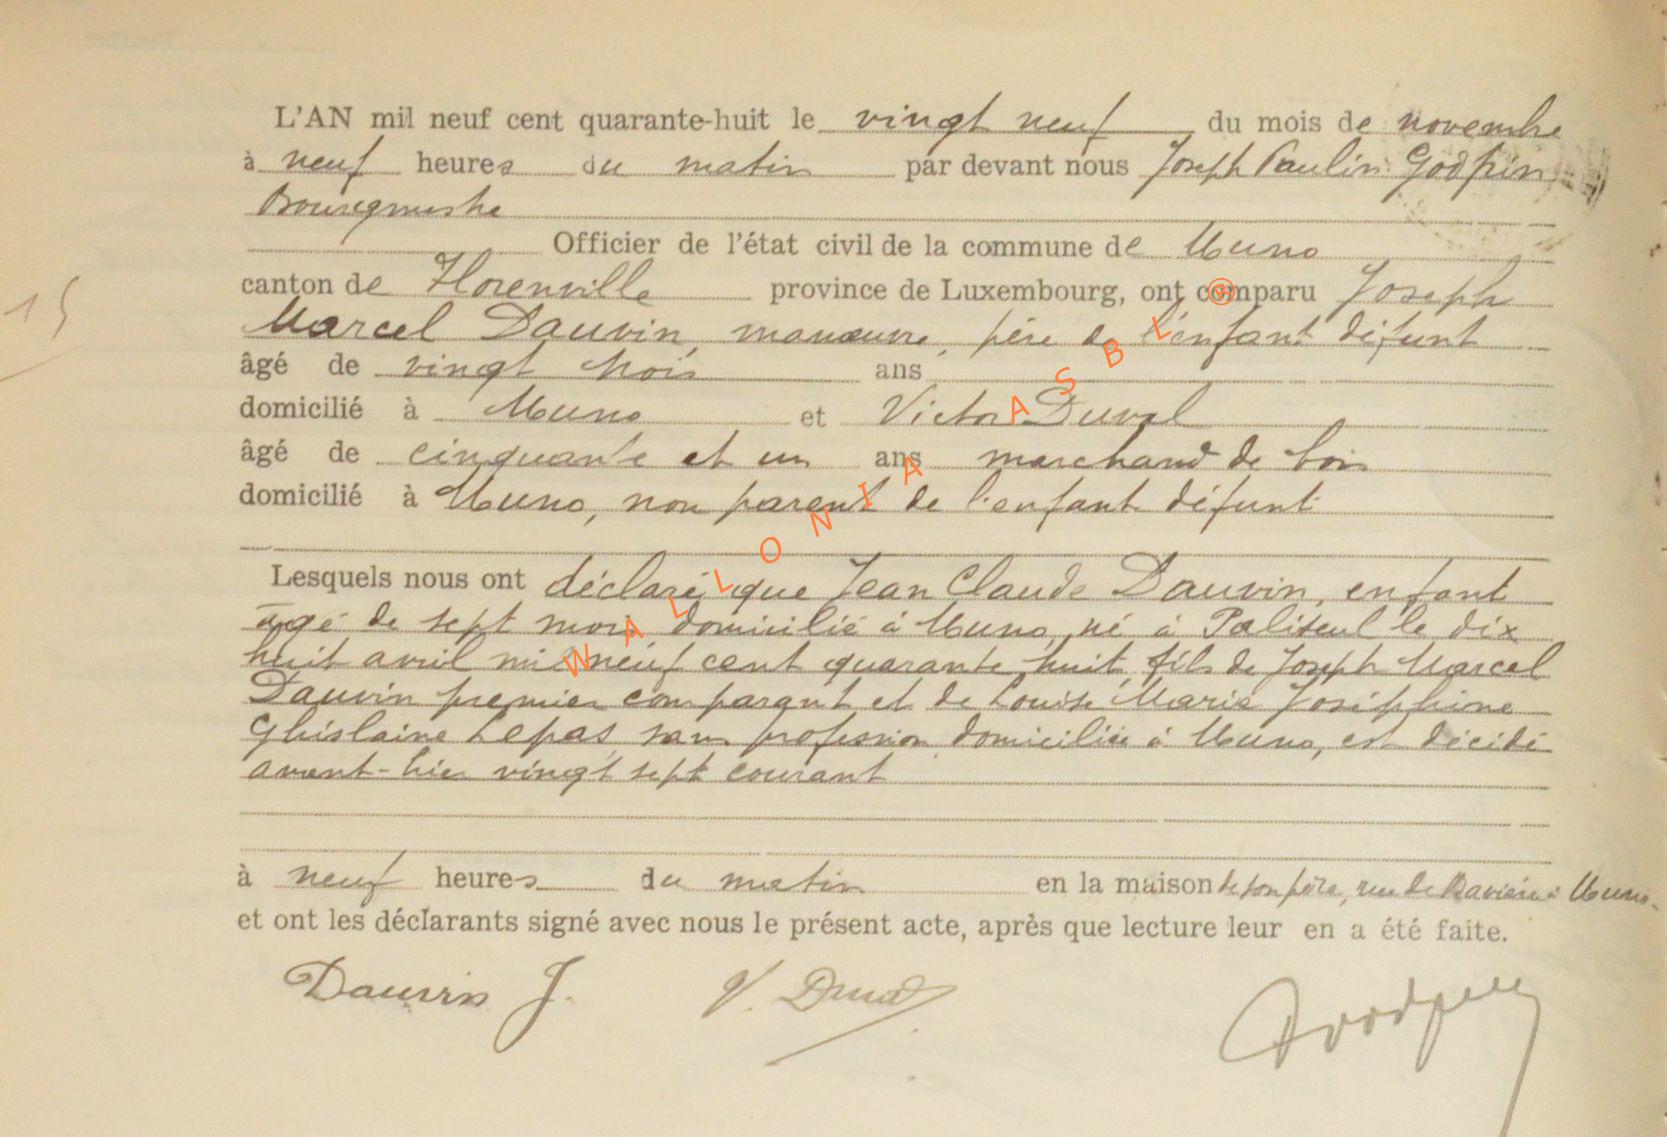 L'AN mil neuf cent quarante-huit le vingt neuf du mois de novembre
à neuf heures du matin par devant nous Joseph Paulin Godfrin
Bourgmestre
Officier de l'état civil de la commune de Muno
canton de Florenville province de Luxembourg, ont comparu Joseph
15
Marcel Dauvin, manœuvre, père de l'enfant défunt
âgé de vingt trois ans
domicilié à Muno et Victor Duval
âgé de cinquante et un ans marchand de bois
domicilié à Muno, non parent de l'enfant défunt
Lesquels nous ont déclaré que Jean Claude Dauvin, enfant
âgé de sept mois domicilié à Muno, né à Paliseul le dix
huit avril mil neuf cent quarante huit fils de Joseph Marcel
Dauvin premier comparant et de Louise Marie Joséphine
Ghislaine Lepas, sans profession domiciliée à Muno, est décédé
avant-hier vingt sept courant
à neuf heures du matin en la maison de son père, rue de Bavière à Muno.
et ont les déclarants signé avec nous le présent acte, après que lecture leur en a été faite.
Dauvin J. V. Duval
WALLONIA ASBL ®